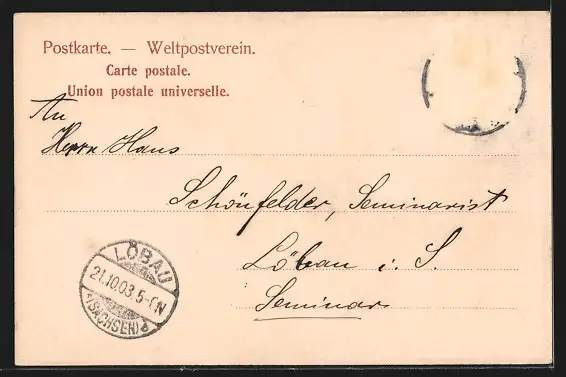 Postkarte. — Weltpostverein.
Carte postale.
Union postale universelle.
An
Herrn Hans
Schönfelder, Seminarist
Löbau i. S.
Seminar
LÖBAU
21.10.03.5-6N
(SACHSEN)